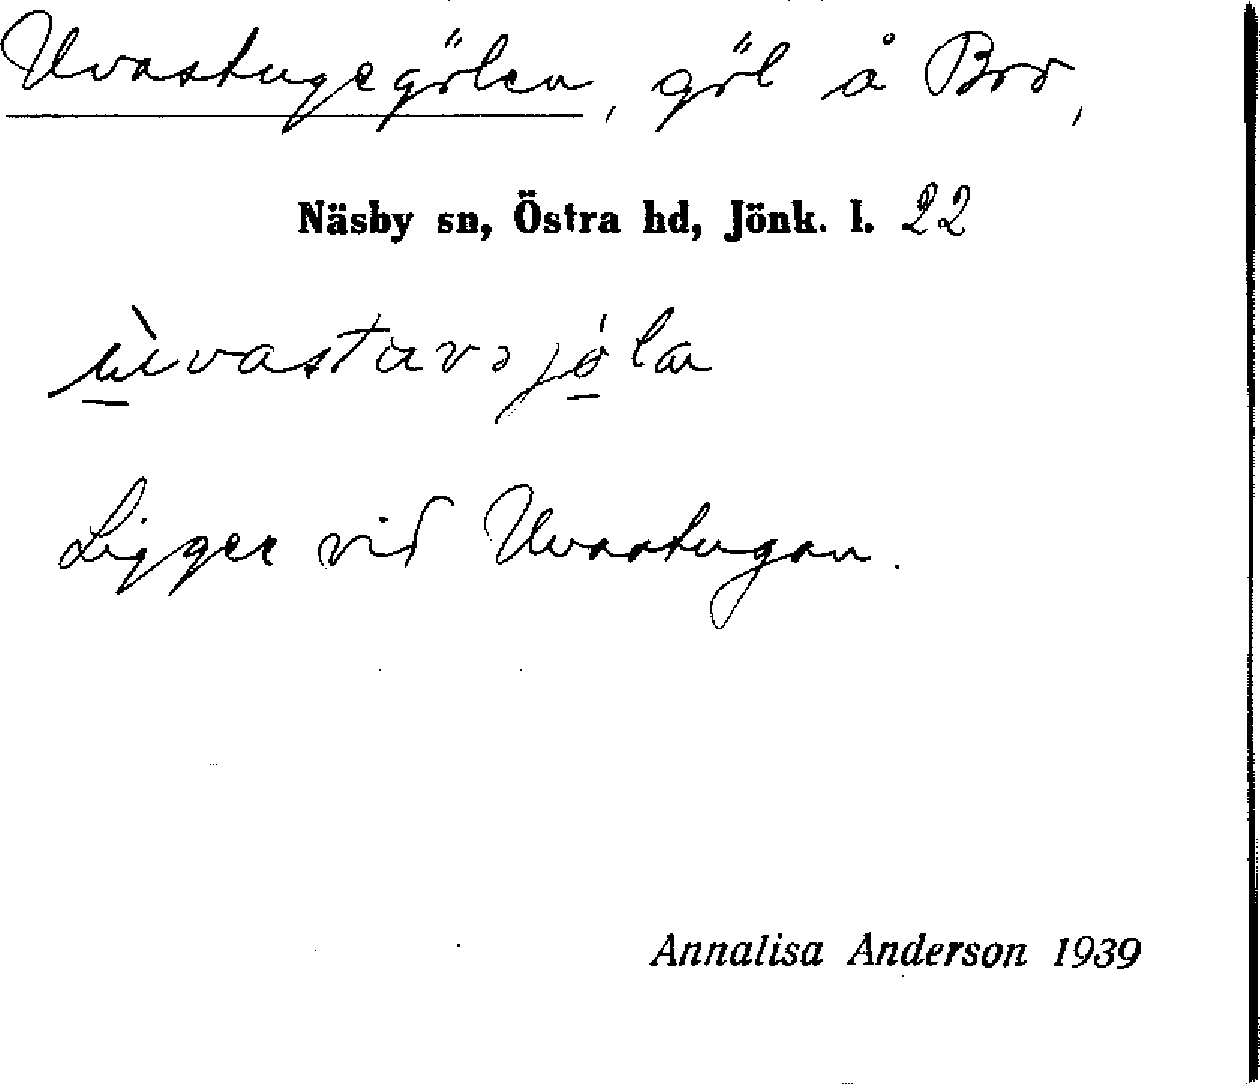 Uvastugegölen, göl å Bro,
Näsby sn, Östra hd, Jönk. l. 22
Ligger vid Uvastugan.
Annalisa Anderson 1939